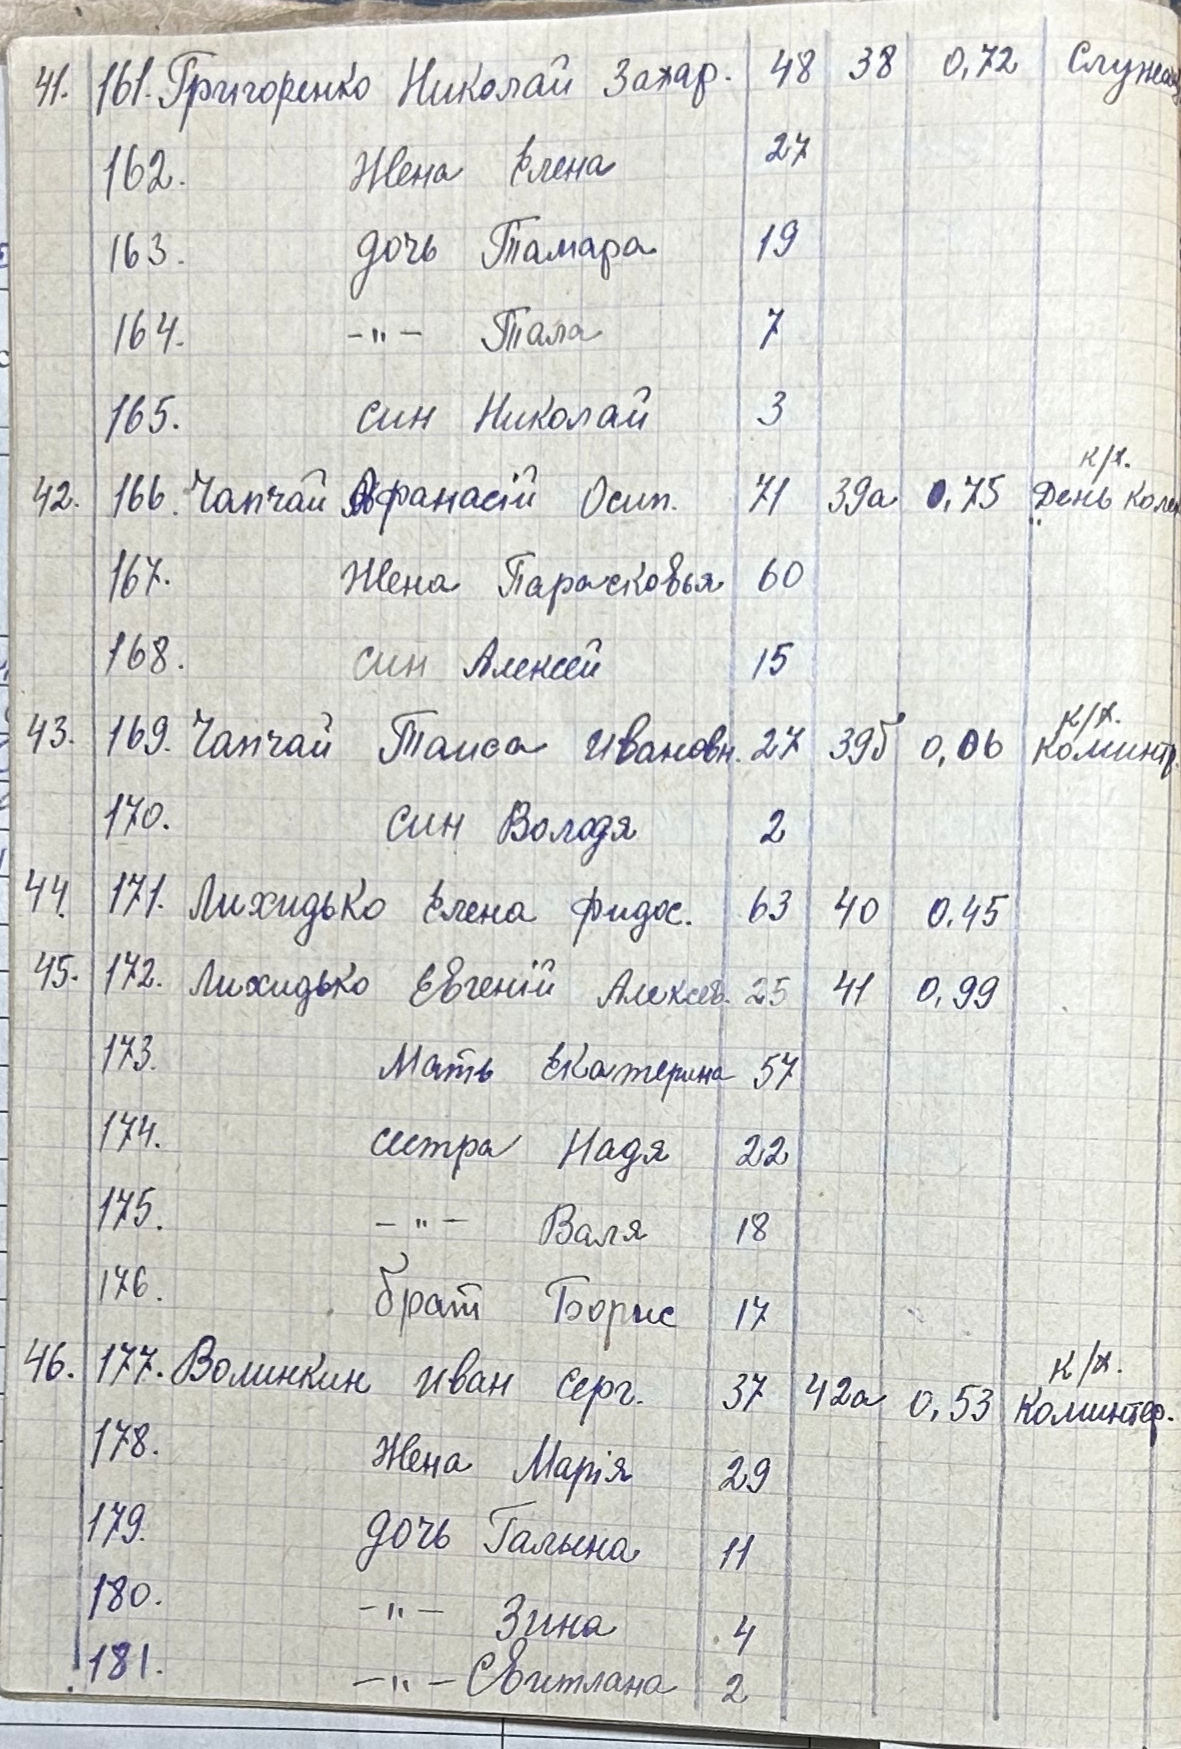 41. 161. Григоренко Николай Захар. 48 38 0,72 Служащ
162. Жена Елена 27
163. дочь Тамара 19
164. -"- Тала 7
165. син Николай 3
42. 166. Чапчай Афанасій Осип. 71 39а 0,75 к/х. День Колек
167. Жена Парасковья 60
168. син Алексей 15
43. 169. Чапчай Таиса Ивановн. 27 39б 0,06 к/х. Коминтр.
170. син Володя 2
44. 171. Лихидько Елена Фидос. 63 40 0.45
45. 172. Лихидько Евгеній Алексев. 25 41 0,99
173. Мать Екатерина 57
174. сестра Надя 22
175. -"- Валя 18
176. брат Борис 17
46. 177. Волинкин Иван Серг. 37 42а 0,53 к/х. Коминтер.
178. Жена Марія 29
179. дочь Галына 11
180. -"- Зина 4
181. -"- Свитлана 2